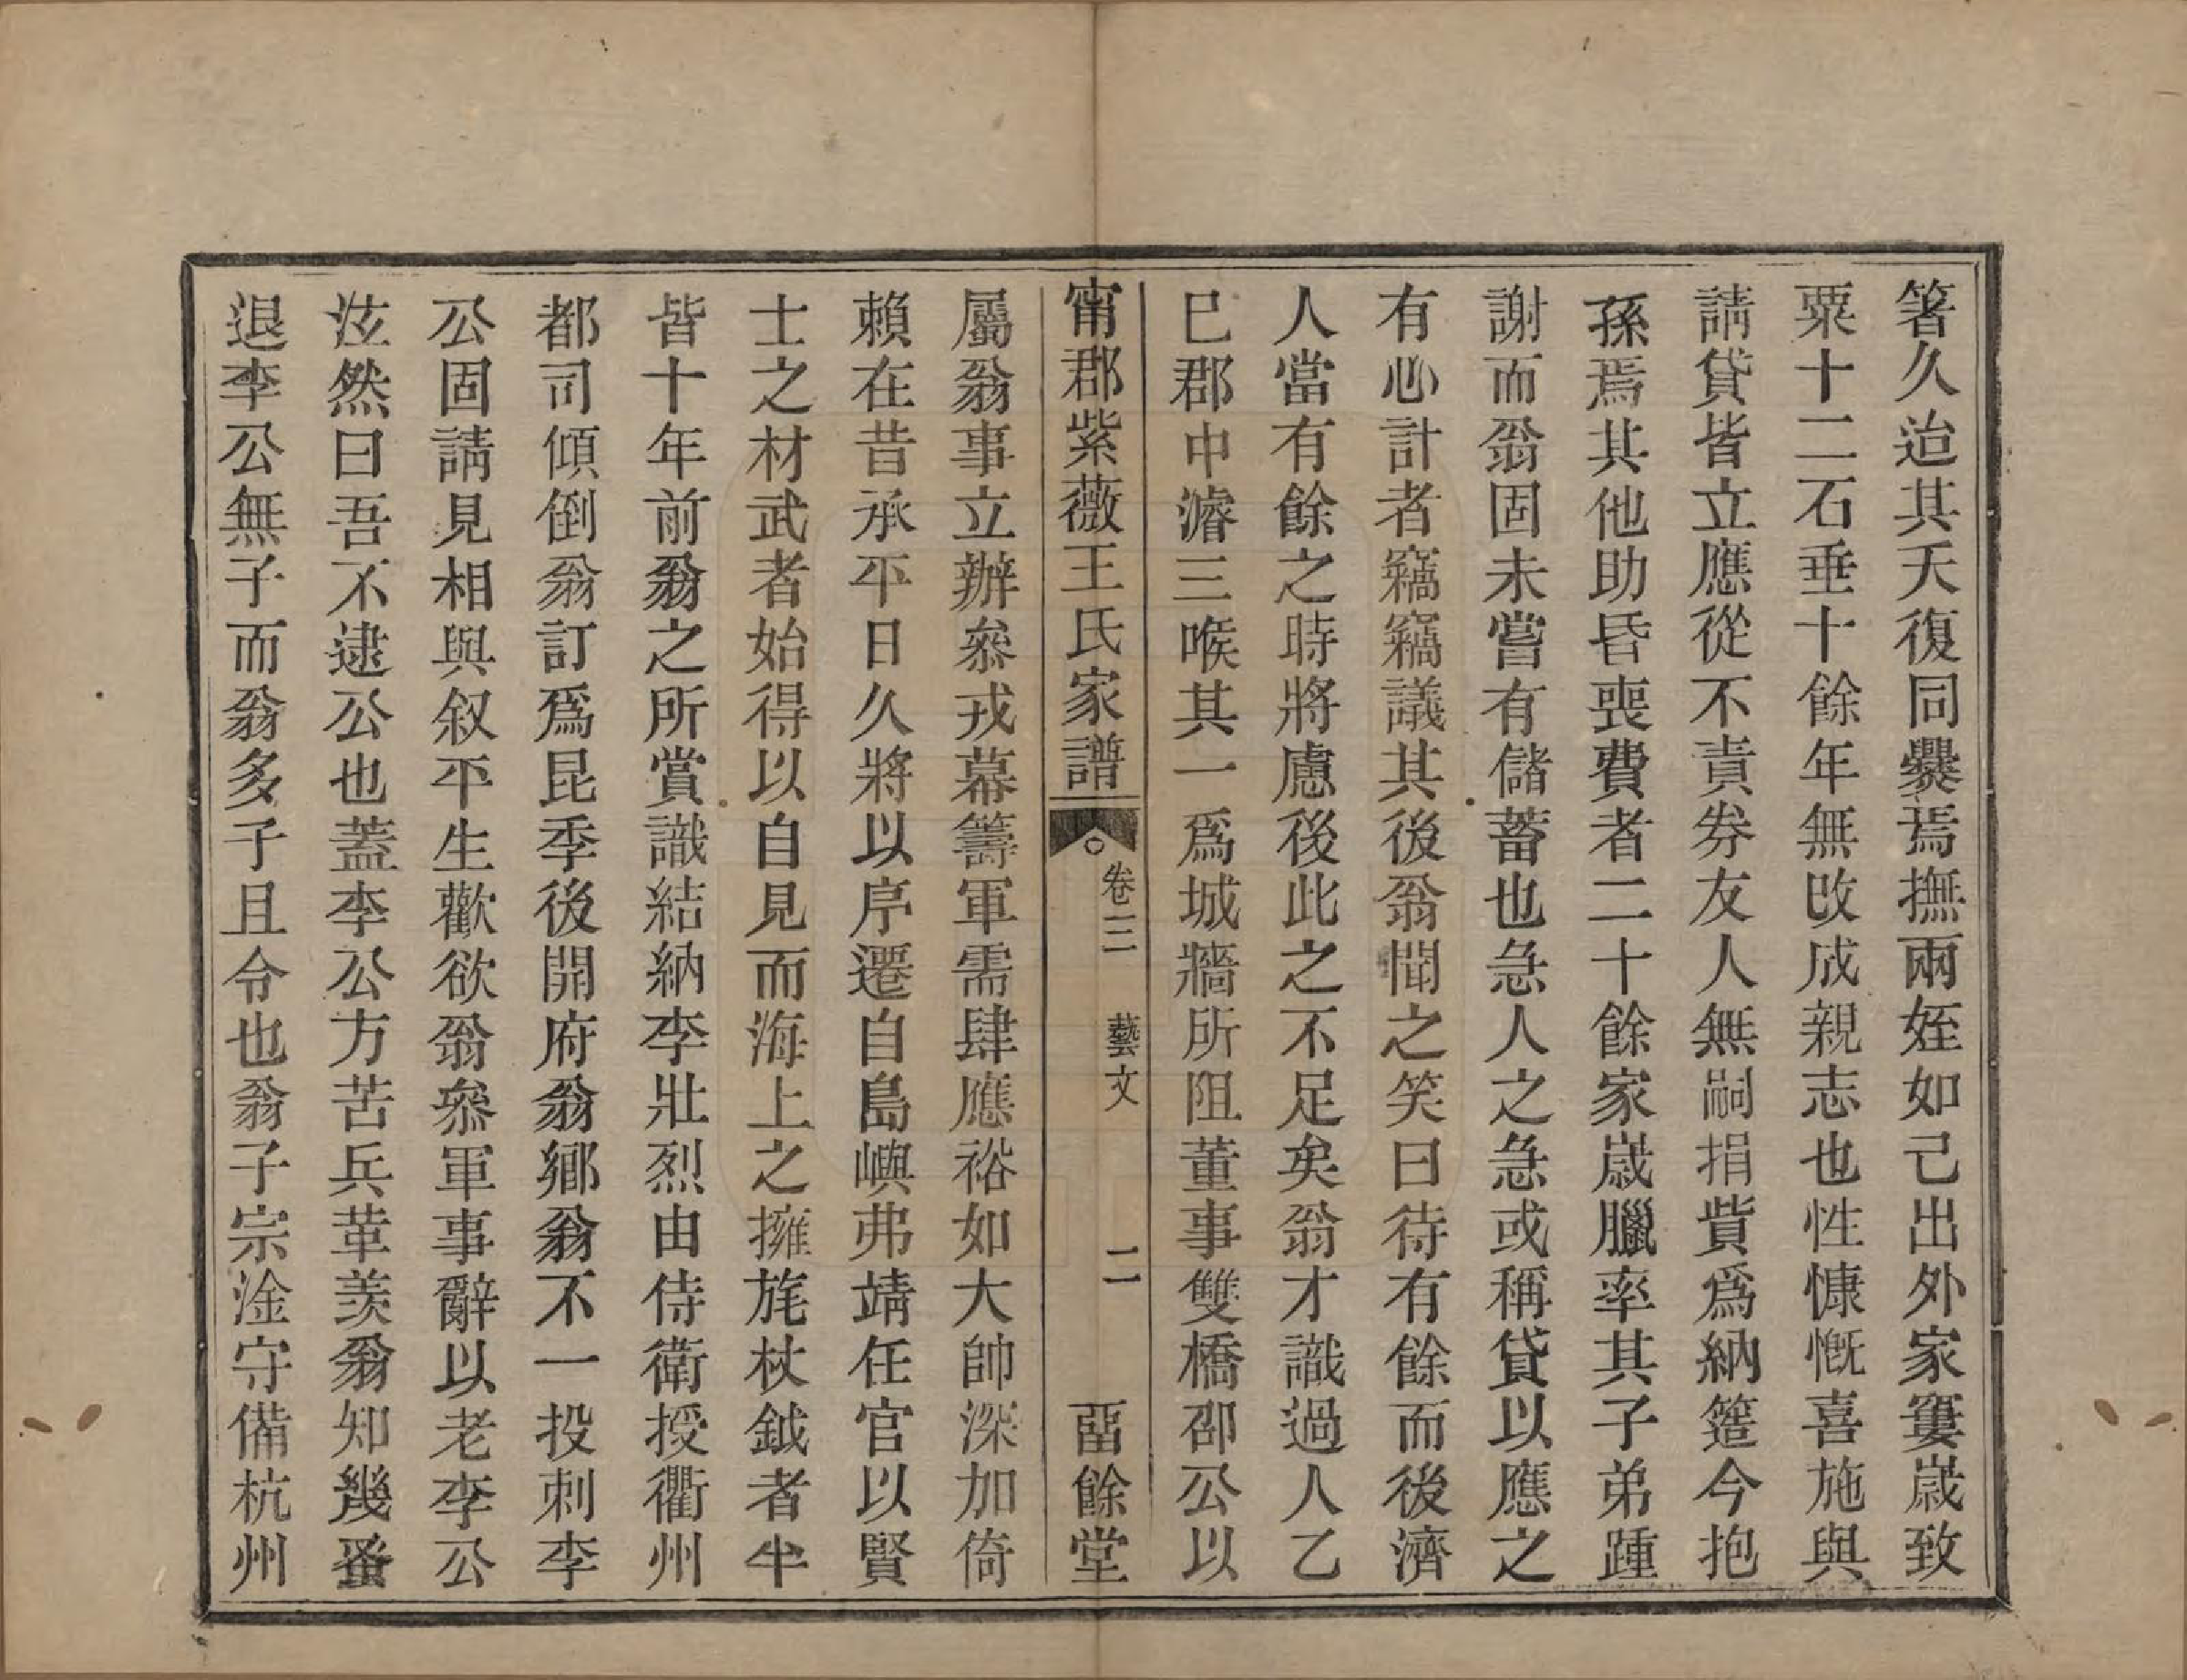 箸久迨其夭復同爨焉撫兩姪如己出外家窶歲致
粟十二石垂十餘年無改成親志也性慷慨喜施與
請貸皆立應從不責券友人無嗣捐貲爲納簉今抱
孫焉其他助昏喪費者二十餘家歲臘率其子弟踵
謝而翁固未嘗有儲蓄也急人之急或稱貸以應之
有心計者竊竊議其後翁聞之笑曰待有餘而後濟
人當有餘之時將慮後此之不足矣翁才識過人乙
巳郡中濬三喉其一爲城牆所阻董事雙橋邵公以
甯郡紫薇王氏家譜 卷三 藝文 二 畱餘堂
屬翁事立辦叅戎幕籌軍需肆應裕如大帥深加倚
賴在昔承平日久將以序遷自島嶼弗靖任官以賢
士之材武者始得以自見而海上之擁旄杖鉞者半
皆十年前翁之所賞識結納李壯烈由侍衛授衢州
都司傾倒翁訂爲昆季後開府翁鄉翁不一投刺李
公固請見相與叙平生歡欲翁叅軍事辭以老李公
泫然曰吾不逮公也蓋李公方苦兵革羨翁知幾蚤
退李公無子而翁多子且令也翁子宗淦守備杭州